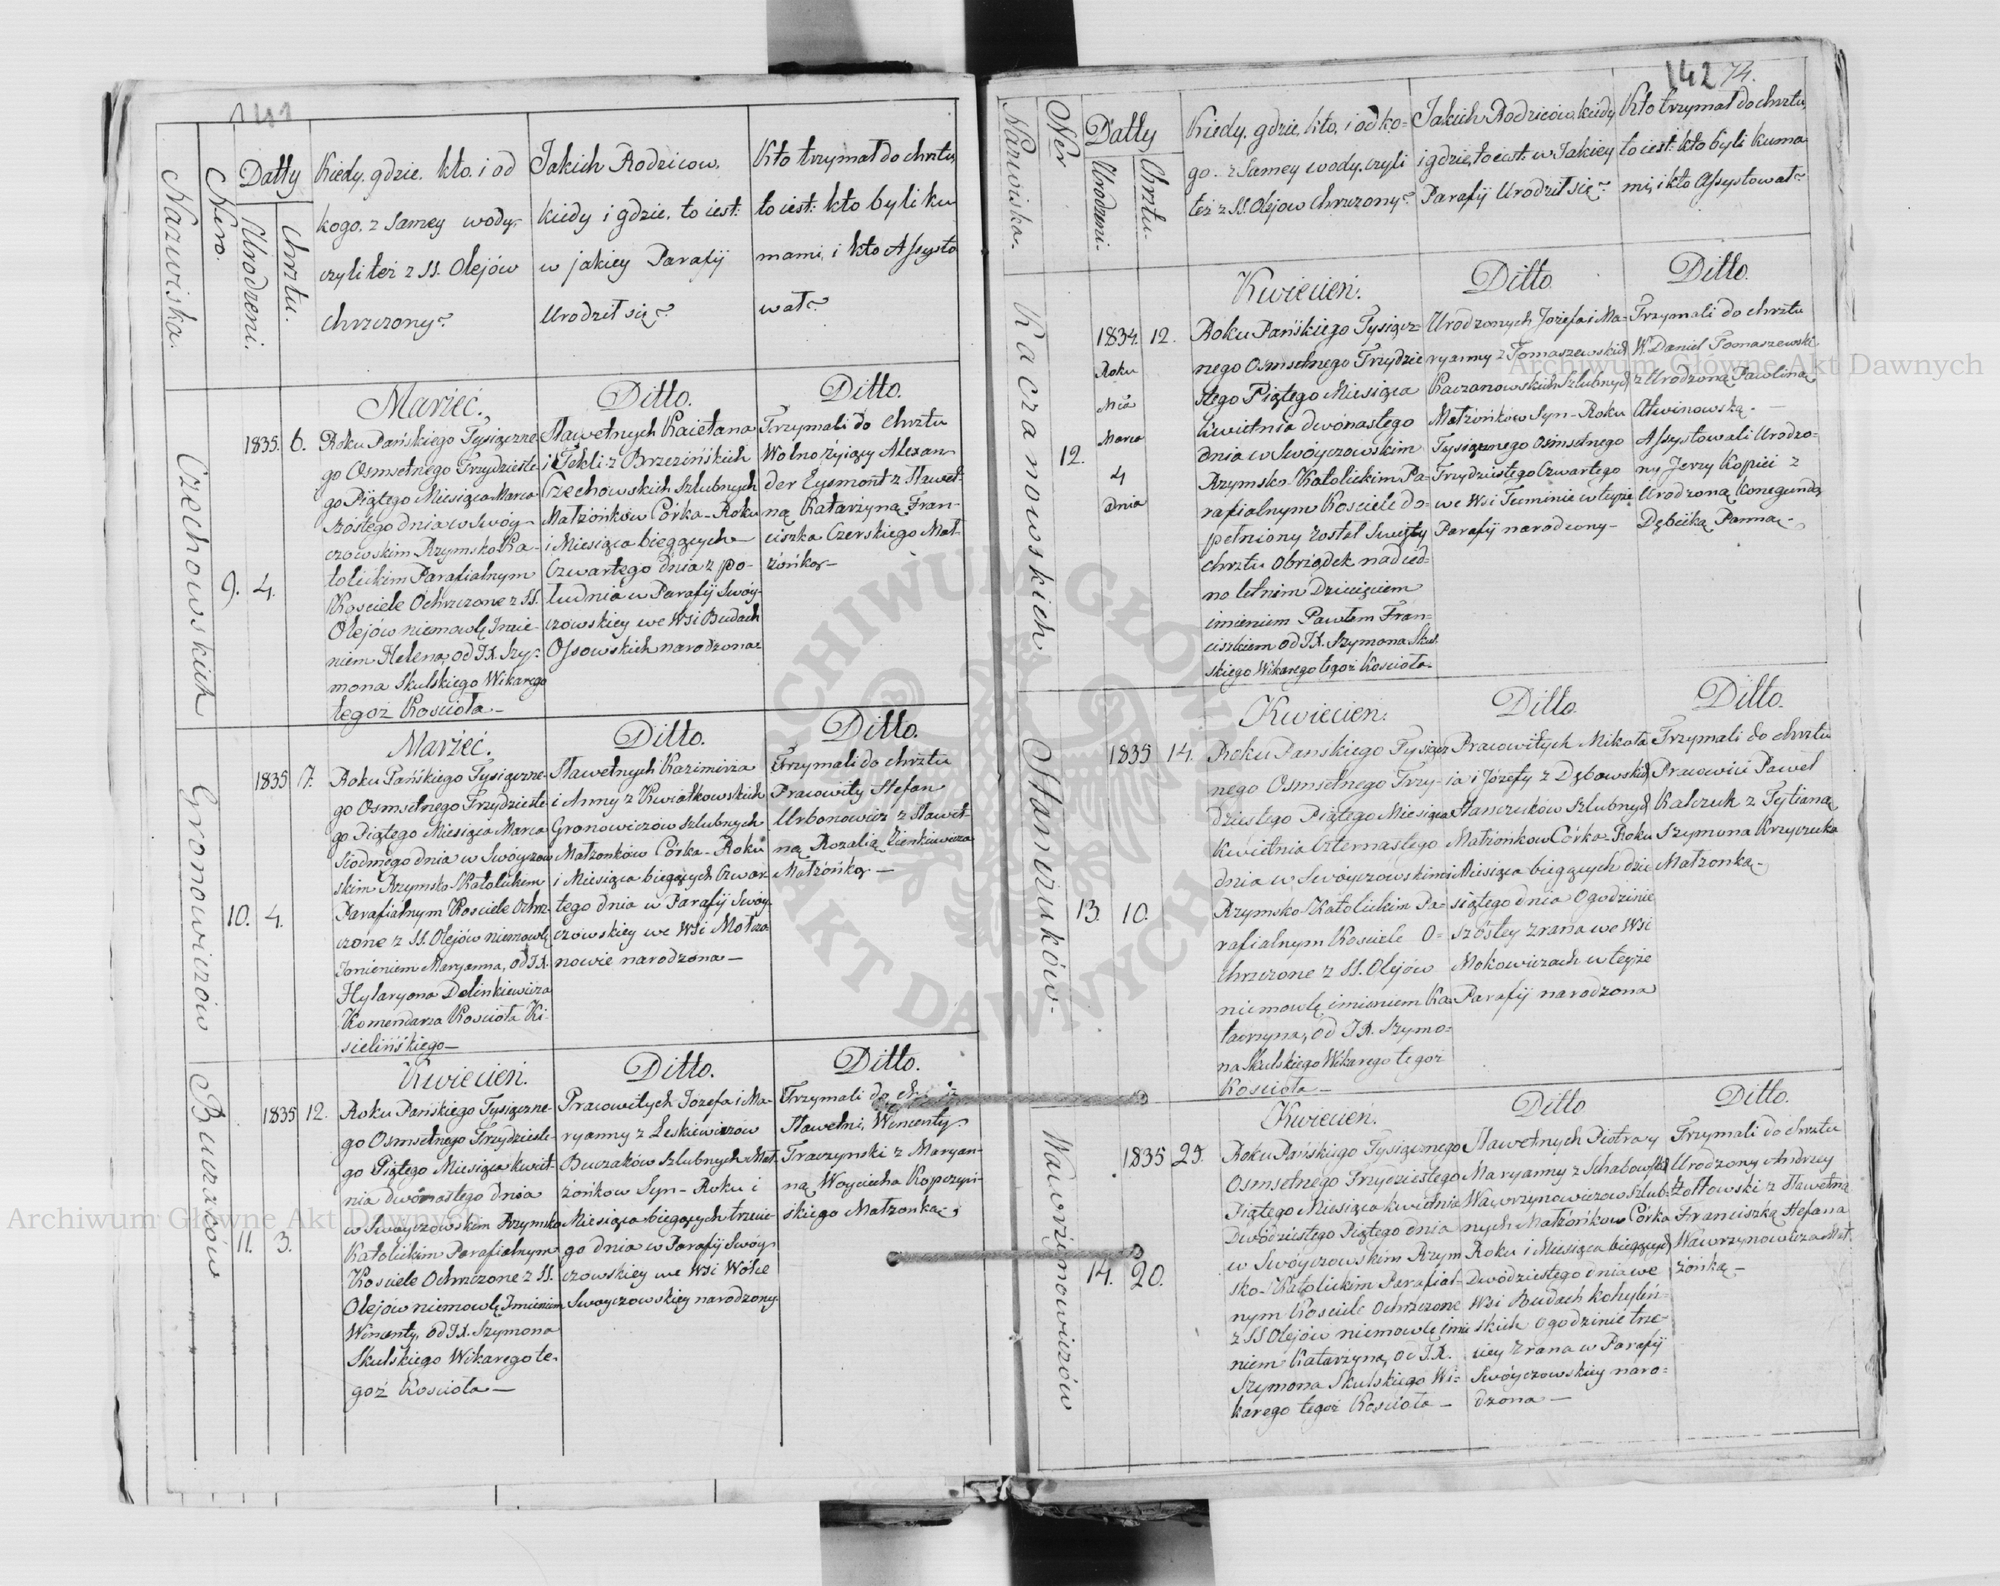 141
Nazwiska.
Nero.
Datty
Urodzeni.
Chrztu.
Kiedy, gdzie, kto, i od
kogo, z samey wody,
czyli też z SS. Olejów
chrzczony?
Jakich Rodzicow,
kiedy i gdzie, to iest:
w jakiey Parafij
Urodził się?
Kto trzymał do chrztu,
to iest: kto byli ku
mami, i kto Assysto
wał?
Czechowskich
9.
4.
1835. 6.
Marzec.
Roku Pańskiego Tysiączne
go Osmsetnego Trzydzieste
go Piątego Miesiąca Marca
Szostego dnia w Swóy-
czowskim Rzymsko Ka-
tolickim Parafialnym
Kosciele Ochrzczone z SS.
Olejów niemowlę Imie-
niem Helena, od JX. Szy-
mona Skulskiego Wikarego
tegoż Kosciola.-
Ditto.
Sławetnych Kaietana
i Tekli z Brzezińskich
Czechowskich Szlubnych
Małżonków Córka - Roku
i Miesiąca bieggcych
Czwartego dnia z po-
ludnia w Parafij Swóy-
czowskiey we Wsi Budach
Ossowskich narodzona
Ditto.
Trzymali do chrztu
Wolno żyiący Alexan
der Eysmont z Sławet-
ną Katarzyną Fran-
ciszka Czerskiego Mał-
żonką-
Gronowiczów
10.
4.
1835 7.
Marzec.
Roku Pańskiego Tysiączne-
go Osmsetnego Trzydzieste
go Piątego Miesiąca Marca
Siódmego dnia w Swóyczow
skim Rzymsko Katolickim
Parafialnym Kosciele Ochrz
czone z SS. Olejów niemowlę
Imieniem Maryanna, od JX.
Hylaryona Dolinkiewicza
Komendarza Kosciola Ki-
sielińskiego-
Ditto.
Sławetnych Kazimirza
i Anny z Kwiatkowskich
Gronowiczów szlubnych
Małżonków Córka - Roku
i Miesiąca biegących Czwar
tego dnia w Parafij Swóy
czowskiey we Wsi Mołcza
nowie narodzona-
Ditto.
Trzymali do chrztu
Pracowity Stefan
Urbonowicz z Sławet-
ną Rozalią Zienkiewicza
Małżonką-
Buczaków
11.
3.
1835 12.
Kwiecień.
Roku Pańskiego Tysiączne-
go Osmsetnego Trzydzieste-
go Piątego Miesiąca Kwiet-
nia dwónastego dnia
w Swóyczowskim Rzymsko
Katolickim Parafialnym
Kosciele Ochrzczone z SS.
Olejów niemowlę Imieniem
Wincenty, od JX. Szymona
Skulskiego Wikarego te-
goż Kosciola-
Ditto.
Pracowitych Józefa i Ma-
ryanny z Leskiewiczow
Buczaków szlubnych Mał-
żonkow Syn - Roku i
Miesiąca biegących trzecie-
go dnia w Parafij Swóy
czowskiey we Wsi Wólce
Swoyczowskiey narodzony
Ditto.
Trzymali do
Sławetni, Wincenty
Traczynski z Maryan-
ną Woyciecha Kopczyń-
skiego Małżonką,
142
74.
Nazwiska.
Ner
Datty
Urodzeni.
Chrztu.
Kiedy, gdzie, kto, i od ko=
go, z Samey wody, czyli
też z SS. Olejow Chrzczony?
Jakich Rodziców, kiedy
i gdzie, to iest: w Jakiey
Parafij Urodził się?
Kto trzymał do chrztu,
to iest: kto byli kuma
mi, i kto Assystował?
Kaczanowskich
12.
1834. 12.
Roku
Mca
Marca
4
dnia
Kwiecień.
Roku Pańskiego Tysiącz-
nego Osmsetnego Trzydzie
stego Piątego Miesiąca
Kwietnia dwónastego
dnia w Swóyczowskim
Rzymsko-Katolickim Pa-
rafialnym Kosciele do-
pełniony został Swięty
chrztu Obrządek nad ied-
no letnim Dziecięciem
imieniem Pawłem Fran-
ciszkiem od JX. Szymona Skul-
skiego Wikarego tegoż Kosciola-
Ditto.
Urodzonych Józefa i Ma-
ryanny z Tomaszewskich
Kaczanowskich Szlubnych
Małżonków Syn - Roku
Tysiącznego Osmsetnego
Trzydziestego Czwartego
we Wsi Tuminie w teyże
Parafij narodzony-
Ditto.
Trzymali do chrztu
W. Daniel Tomaszewski
z Urodzoną Pawliną
Assystowali Urodzo-
ny Jerzy Kopeci z
Urodzoną Konegundą
Dębicką Panną-
Stanizuków.
13.
10.
1835 14.
Kwiecien.
Roku Panskiego Tysiącz
nego Osmsetnego Trzy-
dziestego Piątego Miesiąca
Kwietnia Czternastego
dnia w Swóyczowskim
Rzymsko Katolickim Pa-
rafialnym Kosciele O-
chrzczone z SS. Olejów
niemowlę, imieniem Ka
tarzyna, od JX. Szymo-
na Skulskiego Wikarego tegoż
Kosciola-
Ditto.
Pracowitych Mikoła
ia i Józefy z Dębowskich
Stanizuków Szlubnych
Małżonkow Córka - Roku
i Miesiąca biegących dzie
siątego dnia O godzinie
szóstey zrana we Wsi
Mokowiczach w teyże
Parafij narodzona
Ditto.
Trzymali do chrztu
Pracowici Paweł
Kalczuk z Tytianą
Szymona Krzyczuka
Małżonką-
Wawrzynowiczów
14.
20.
1835 25.
Kwiecien.
Roku Pańskiego Tysiącznego
Osmsetnego Trzydziestego
Piątego Miesiąca Kwietnia
Dwódziestego Piątego dnia
w Swóyczowskim Rzym
sko-Katolickim Parafial-
nym Kosciele Ochrzczone
z SS Olejów niemowlę imie
niem Katarzyna, od JX.
Szymona Skulskiego Wi=
karego tegoż Kosciola-
Ditto
Sławetnych Piotra y
Maryanny z Schabowskich
Wawrzynowiczow Szlub-
nych Małżonkow Córka
Roku i Miesiąca biegących
Dwódziestego dnia we
Wsi Budach Kohyleń-
skich O godzinie trze-
ciey zrana w Parafij
Swóyczowskiey naro-
dzona-
Ditto.
Trzymali do chrztu
Urodzony Andrzey
Zołtowski z Sławetną
Franciszką Stefana
Wawrzynowicza Mał-
żonką-
Archiwum Główne Akt Dawnych
Archiwum Główne Akt Dawnych
ARCHIWUM GŁÓWNE
AKT DAWNYCH